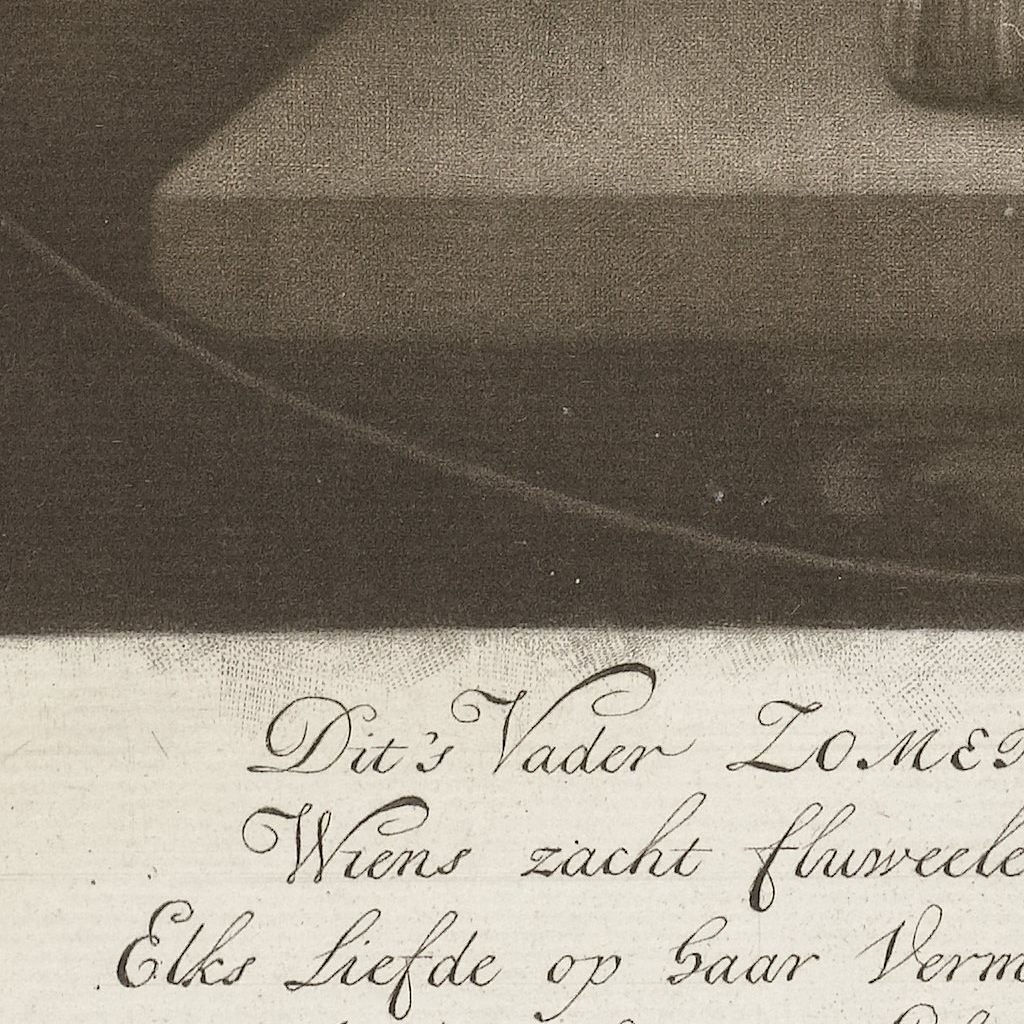 Dit's Vader ZOMER
Wiens zacht fluweele
Elks Liefde op haar Verm